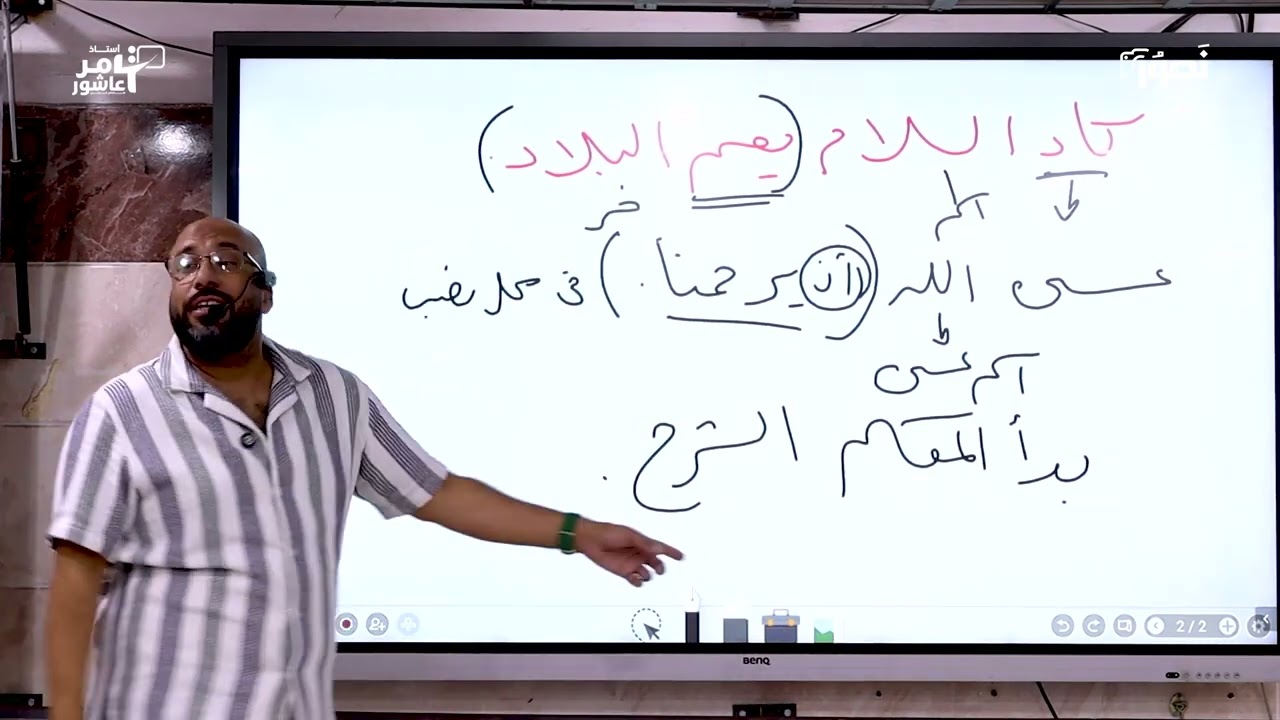 أستاذ
تامر
عاشور
نَصوّر
كاد السلام (يعم البلاد.)
اسم
خبر
عسى الله (أن يرحمنا.) فى محل نصب
اسم عسى
بدأ المعلم الشرح.
2/2
BenQ